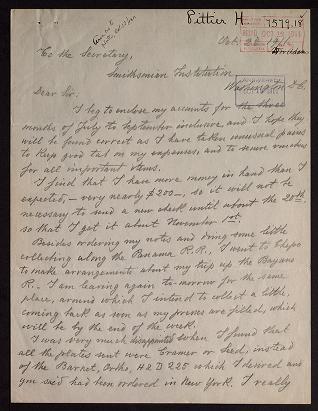 Pittier H
7579.18
Oct.
To the Secretary,
Smithsonian Institution,
Washington D.C.
Dear Sir:
I beg to enclose my accounts for the three
months of July to September inclusive, and I hope they
will be found correct as I have taken unusual pains
to keep good tab on my expenses, and to secure vouchers
for all important items.
I find that I have more money in hand than I
expected, – very nearly $200 –, so it will not be
necessary to send a new check until about the 20th,
so that I get it about November 1st.
Besides ordering my notes and doing some little
collecting along the Panama R.R., I went to Chepo
to make arrangements about my trip up the Bayano
R.. I am leaving again to-morrow for the same
place, around which I intend to collect a little,
coming back as soon as my presses are filled, which
will be by the end of the week.
I was very much disappointed when I found that
all the plates sent were Cramer or Seed, instead
of the Barnet, Ortho, H & D 225 which I desired and
you said had been ordered in New York. I really